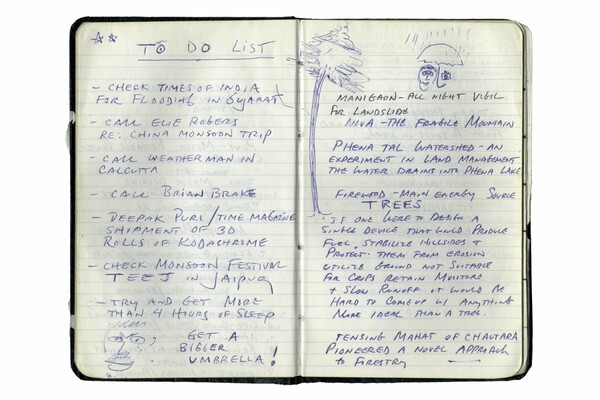 TO DO LIST
- CHECK TIMES OF INDIA
FOR FLOODING IN GUJARAT
- CALL ELIE ROGERS
RE: CHINA MONSOON TRIP
- CALL WEATHERMAN IN
CALCUTTA
- CALL BRIAN BRAKE
- DEEPAK PURI / TIME MAGAZINE
SHIPMENT OF 30
ROLLS OF KODACHROME
- CHECK MONSOON FESTIVAL
TEEJ IN JAIPUR
- TRY AND GET MORE
THAN 4 HOURS OF SLEEP
GET A
BIGGER
UMBRELLA!
MANIGAON - ALL NIGHT VIGIL
FOR LANDSLIDE
NOVA - THE FRAGILE MOUNTAIN
PHEWA TAL WATERSHED - AN
EXPERIMENT IN LAND MANAGEMENT
THE WATER DRAINS INTO PHEWA LAKE
FIREWOOD - MAIN ENERGY SOURCE
TREES
IS ONE WERE TO DESIGN A
SINGLE DEVICE THAT WOULD PRODUCE
FUEL, STABILIZE HILLSIDES +
PROTECT THEM FROM EROSION
UTILIZE GROUND NOT SUITABLE
FOR CROPS RETAIN MOISTURE
+ SLOW RUNOFF IT WOULD BE
HARD TO COME UP W/ ANYTHING
MORE IDEAL THAN A TREE.
TENSING MAHAT OF CHAUTARA
PIONEERED A NOVEL APPROACH
to FIRESTRY